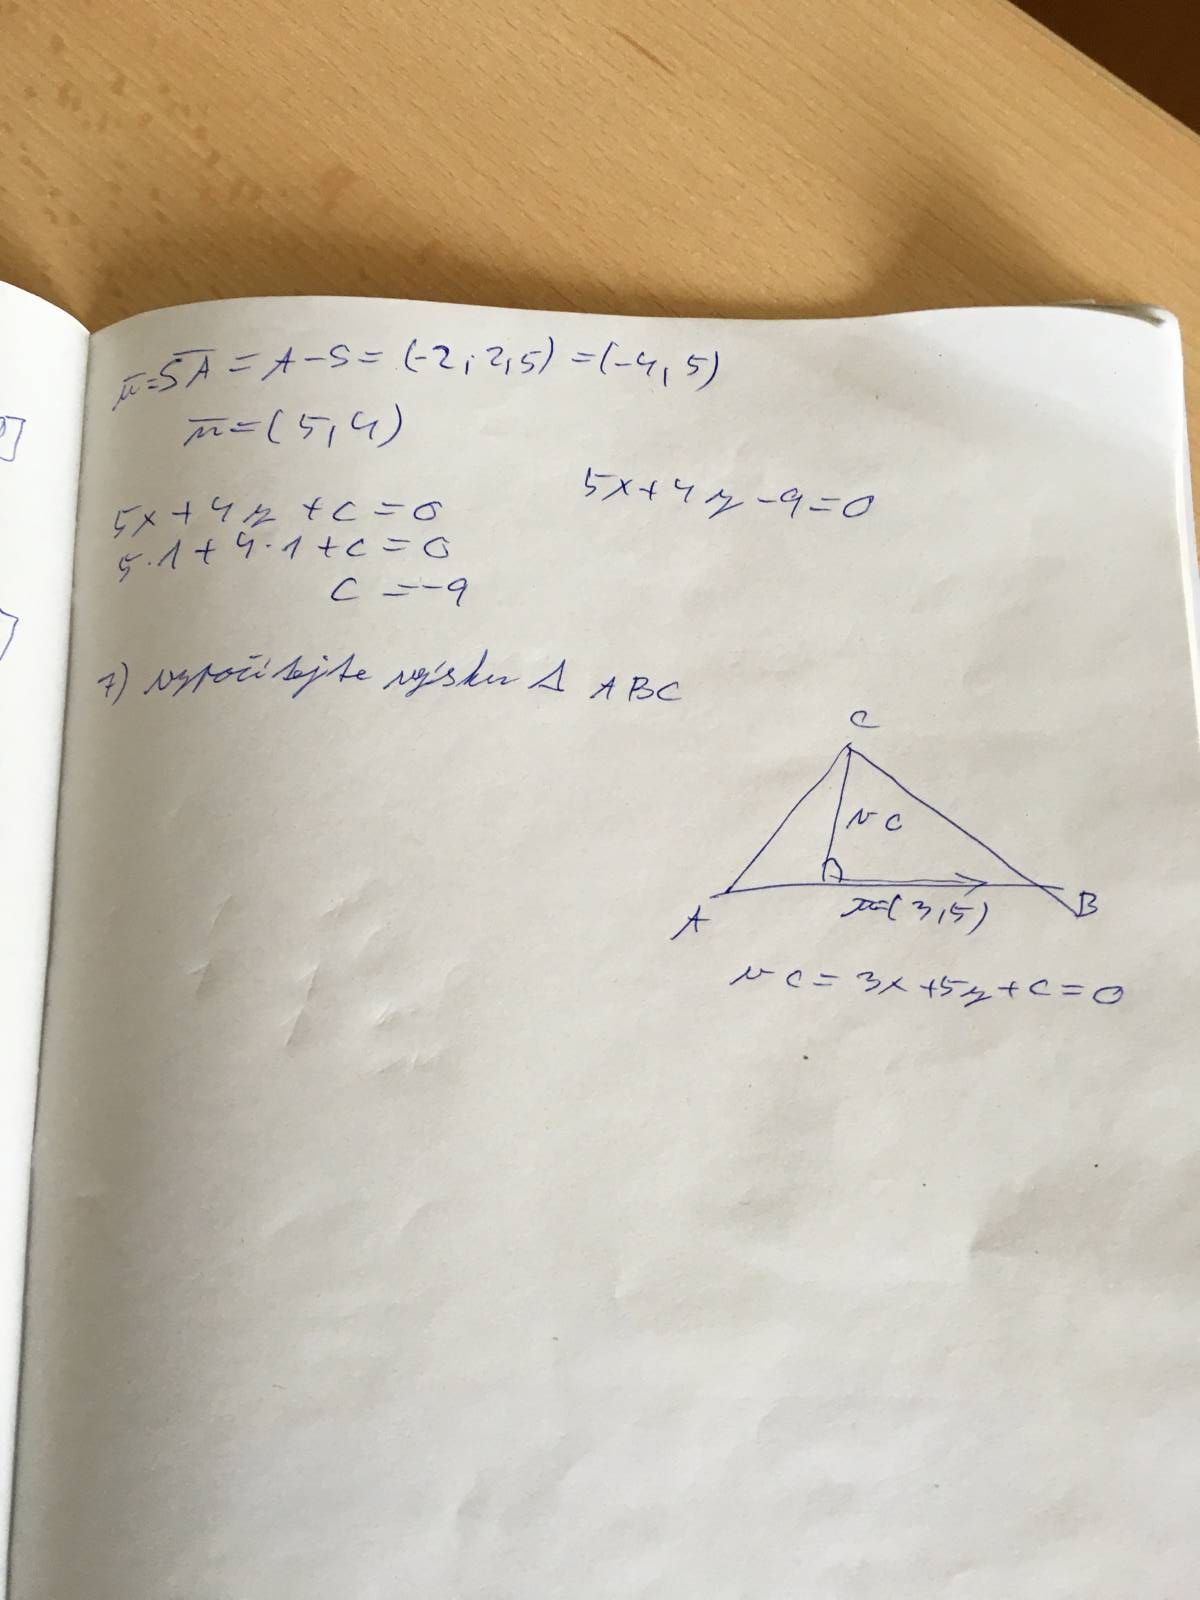 u=SA = A-S = (-2; 2,5) = (-4, 5)
n=(5,4)
5x+4y+c=0
5x+4y-9=0
5·1+4·1+c=0
c=-9
7) vypočítejte výšku Δ ABC
C
v c
A
n=(3,5)
B
v c = 3x+5y+c=0